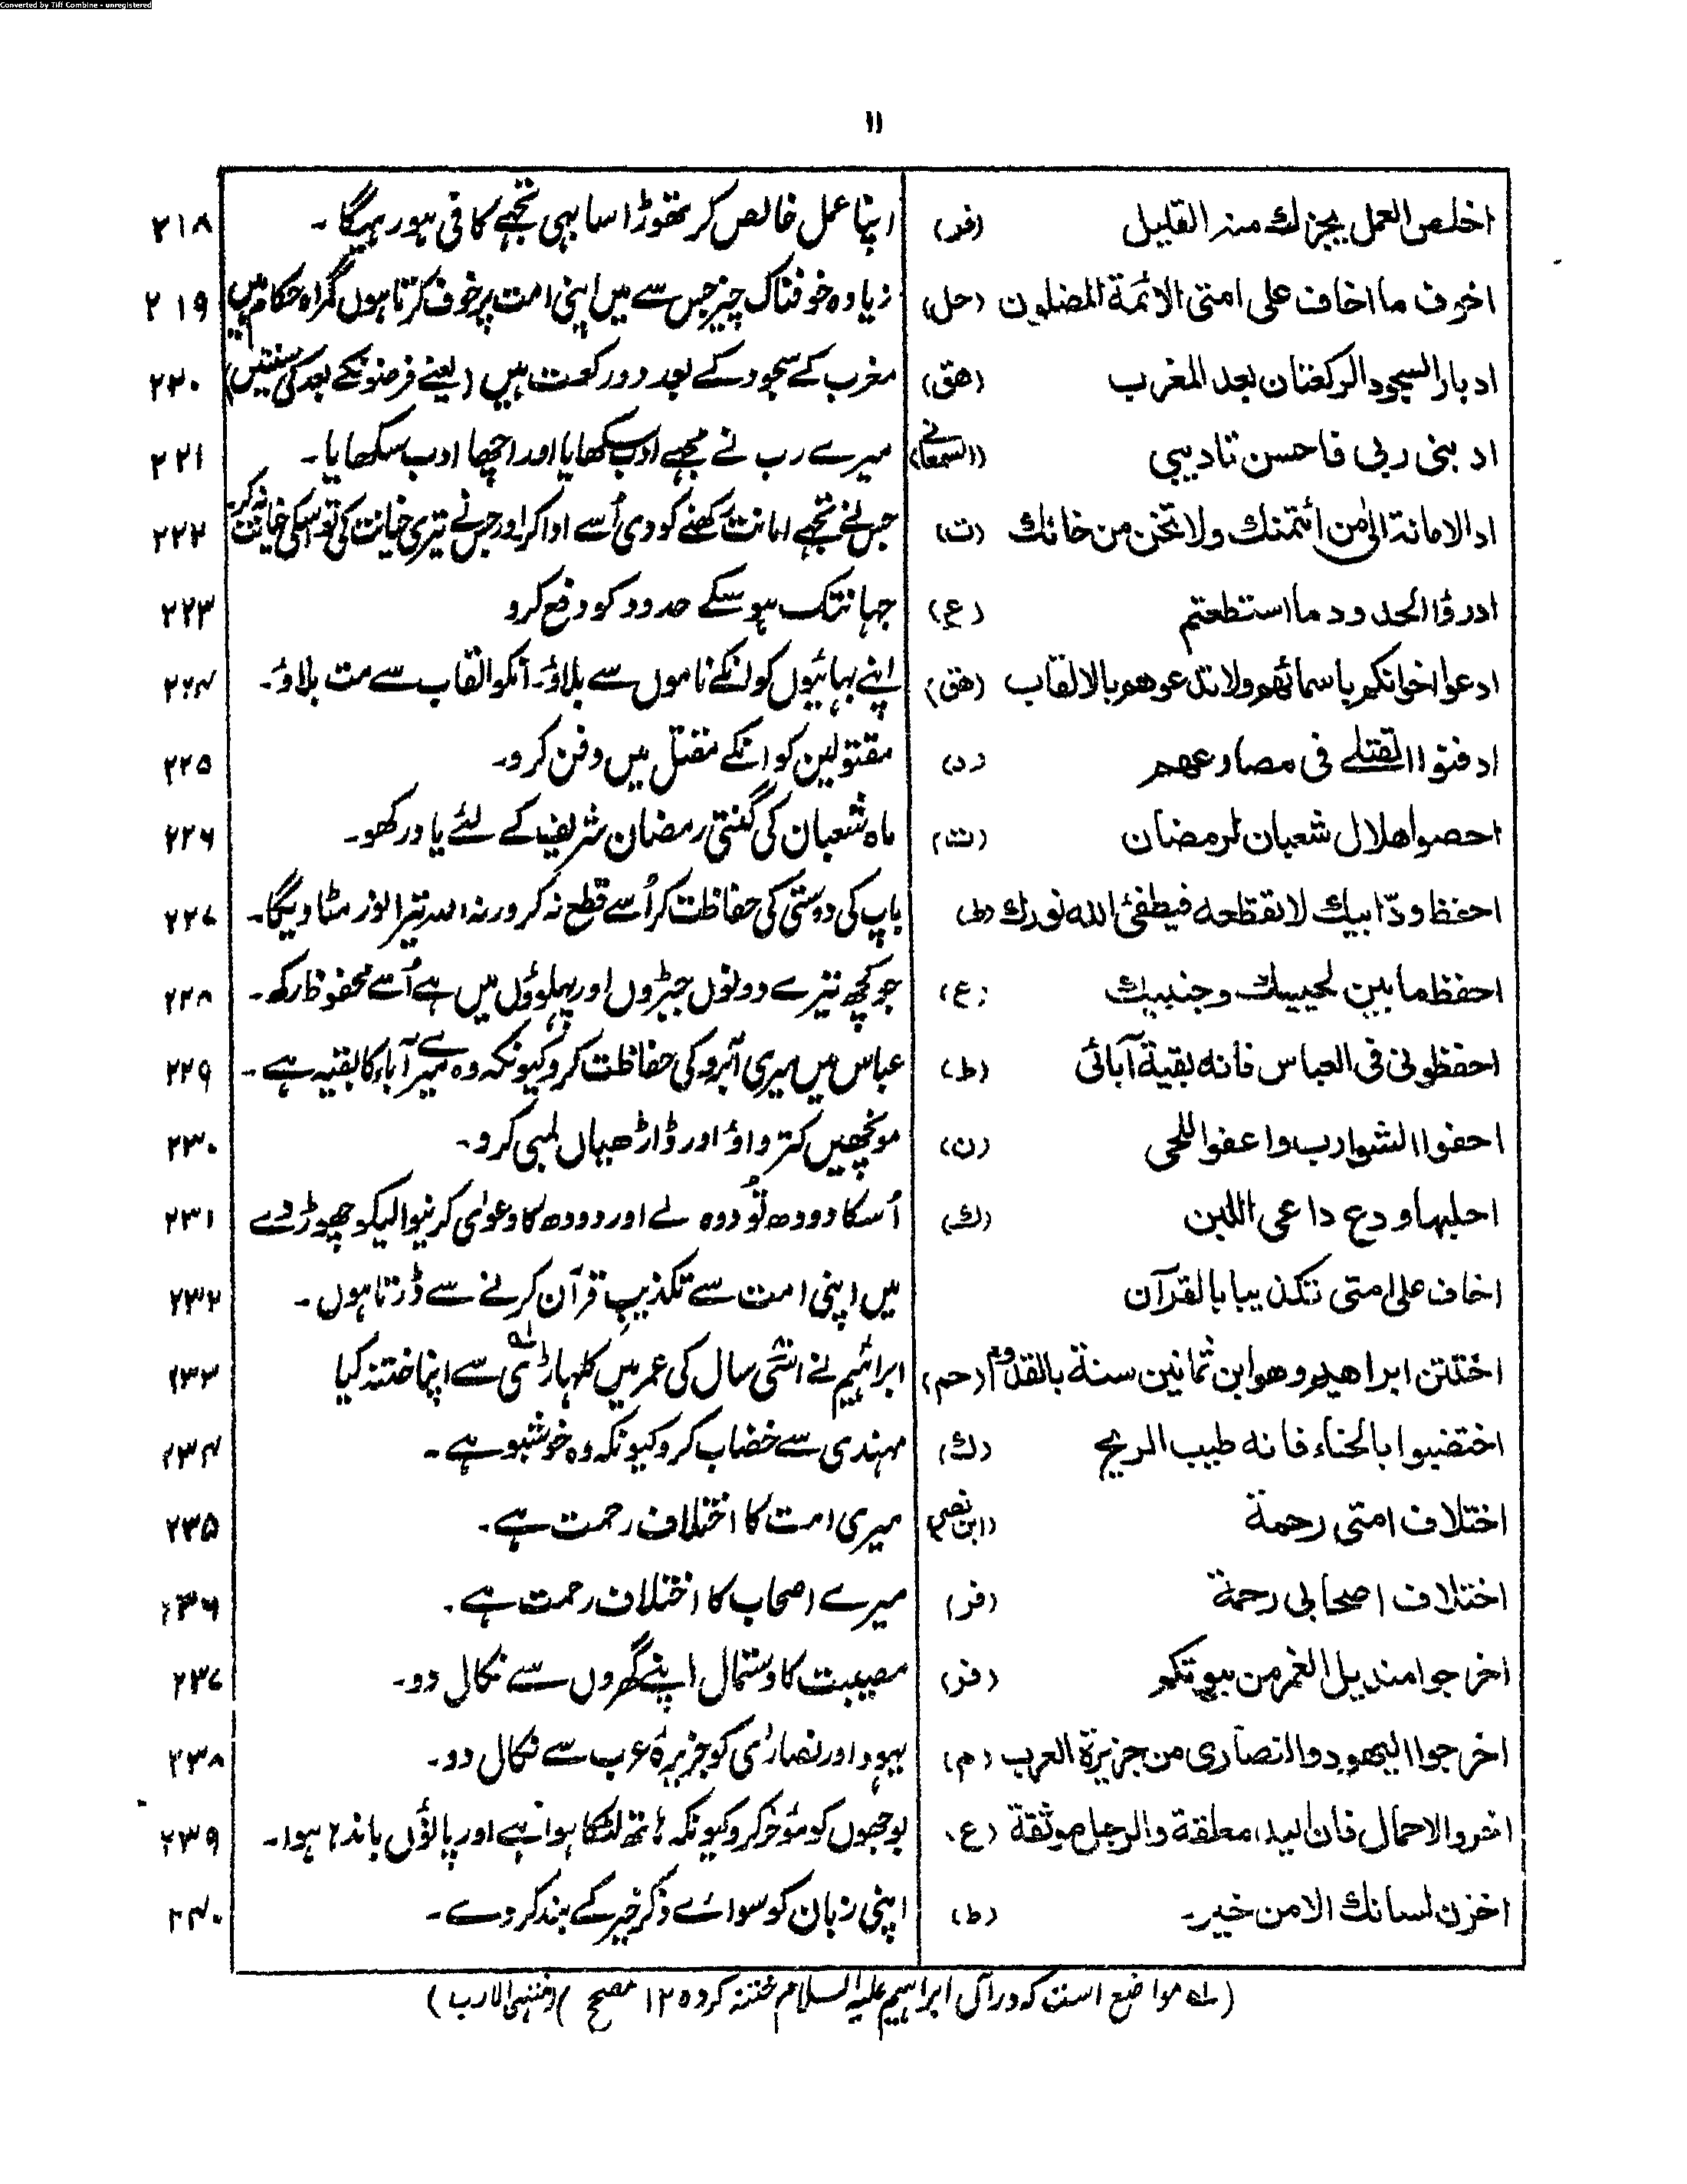 Converted by Tiff Combine - unregistered
۱۱
اخلص العمل يجزك منه القليل (فر) اپنا عمل خالص کر تھوڑا سا بہی تجھے کافی ہو رہیگا۔ ۲۱۸
اخوف ما اخاف على امتى الائمة المضلون (حل) زیادہ خوفناک چیز جس سے میں اپنی امت پر خوف کرتا ہوں گمراہ حکام ہیں ۲۱۹
ادبار السجود الركعتان بعد المغرب (هق) مغرب کے سجود کے بعد دو رکعت ہیں (یعنے فرضونکے بعد کی سنتیں) ۲۲۰
ادبنى ربى فاحسن تاديبى (السمعانے) میرے رب نے مجہے ادب سکھایا اور اچھا ادب سکھایا۔ ۲۲۱
اد الامانة الى من ائتمنك ولا تخن من خانك (ت) جس نے تجہے امانت رکھنے کو دی اُسے ادا کر اور جس نے تیری خیانت کی تو اسکی خیانت نہ کر۔ ۲۲۲
ادرؤا الحدود ما استطعتم (ع) جہانتک ہو سکے حدود کو دفع کرو ۲۲۳
ادعوا اخوانكم باسمائهم ولا تدعوهم بالالقاب (هق) اپنے بہائیوں کو انکے ناموں سے بلاؤ۔ انکو القاب سے مت بلاؤ۔ ۲۲۴
ادفنوا القتلے فى مصارعهم (د) مقتولین کو انکے مقتل میں دفن کرو۔ ۲۲۵
احصوا هلال شعبان لرمضان (ت) ماہ شعبان کی گنتی رمضان شریف کے لئے یاد رکھو۔ ۲۲۶
احفظ ودّ ابيك لا تقطعه فيطفئ الله نورك (ط) باپ کی دوستی کی حفاظت کر اُسے قطع نہ کر ورنہ اللہ تیرا نور مٹا دیگا۔ ۲۲۷
احفظ ما بين لحييك وجنبيك (ع) جو کچھ تیرے دونوں جبڑوں اور پہلوؤں میں ہے اُسے محفوظ رکھ۔ ۲۲۸
احفظونى فى العباس فانه بقية آبائى (ط) عباس میں میری آبرو کی حفاظت کرو کیونکہ وہ میرے آباء کا بقیہ ہے۔ ۲۲۹
احفوا الشوارب واعفوا اللحى (ن) مونچھیں کترواؤ اور ڈاڑھیاں لمبی کرو۔ ۲۳۰
احلبها ودع داعى اللبن (ك) اُسکا دودھ تُو دوہ لے اور دودھ کا دعوٰی کرنیوالیکو چھوڑ دے ۲۳۱
اخاف على امتى تكذيبا بالقرآن میں اپنی امت سے تکذیبِ قرآن کرنے سے ڈرتا ہوں۔ ۲۳۲
اختتن ابراهيم وهو ابن ثمانين سنة بالقدوم (حم) ابراہیم نے اسّی سال کی عمر میں کلہاڑی سے اپنا ختنہ کیا ۲۳۳
اختضبوا بالحناء فانه طيب الريح (ك) مہندی سے خضاب کرو کیونکہ وہ خوشبو ہے۔ ۲۳۴
اختلاف امتى رحمة (ابن نصر) میری امت کا اختلاف رحمت ہے۔ ۲۳۵
اختلاف اصحابى رحمة (فر) میرے اصحاب کا اختلاف رحمت ہے۔ ۲۳۶
اخرجوا منديل الغمر من بيوتكم (فر) مصیبت کا دستمال اپنے گھروں سے نکال دو۔ ۲۳۷
اخرجوا اليهود والنصارى من جزيرة العرب (م) یہود اور نصارٰی کو جزیرۂ عرب سے نکال دو۔ ۲۳۸
اخروا الاحمال فان اليد معلقة والرجل موثقة (ع) بوجہوں کو مؤخر کرو کیونکہ ہاتھ لٹکا ہوا ہے اور پاؤں باندہا ہوا۔ ۲۳۹
اخزن لسانك الا من خير۔ (ط) اپنی زبان کو سوائے ذکرِ خیر کے بند کر دے۔ ۲۴۰
(لہ مواضع است کہ در آں ابراہیم علیہ السلام ختنہ کردہ ۱۲ مصحح) (منتہی الارب)